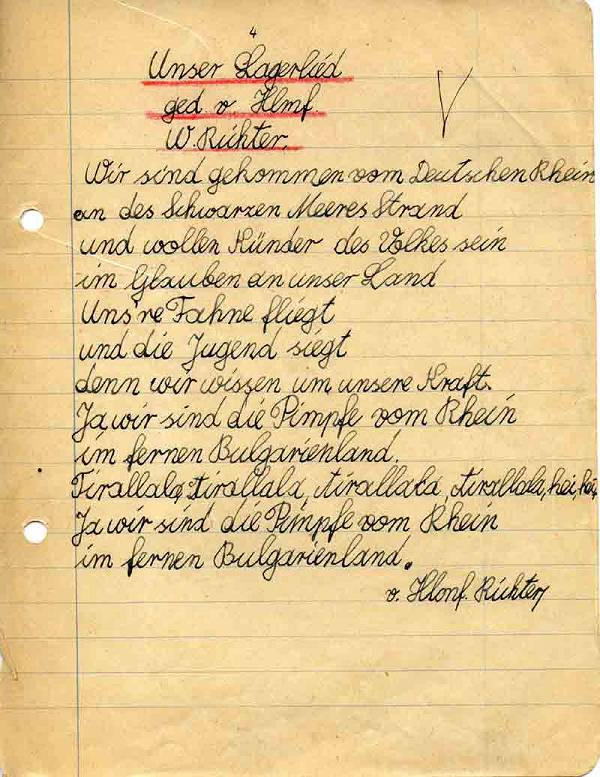 4
Unser Lagerlied
ged. v. Hlmf.
W. Richter.
Wir sind gekommen vom Deutschen Rhein
an des Schwarzen Meeres Strand
und wollen Künder des Volkes sein
im Glauben an unser Land
Uns're Fahne fliegt
und die Jugend siegt
denn wir wissen um unsere Kraft.
Ja wir sind die Pimpfe vom Rhein
im fernen Bulgarienland.
Tirallala, tirallala, tirallala, tirallala, hei, hei,
Ja wir sind die Pimpfe vom Rhein
im fernen Bulgarienland.
v. Hlmf. Richter